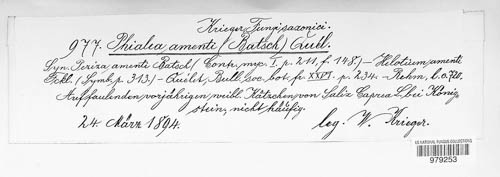 Krieger, Fungi saxonici.
977. Phialea amenti (Batsch) Quél.
Syn. Peziza amenti Batsch (Cont. myc. I. p. 211, f. 148.) – Helotium amenti
Fckl. (Symb. p. 313.) – Quélet, Bull. soc. bot. fr. XXVI. p. 234. – Rehm, l. c. 720.
Auf faulenden vorjährigen weibl. Kätzchen von Salix Caprea L. bei König-
stein, nicht häufig.
24. März 1894.
leg. W. Krieger.
US NATIONAL FUNGUS COLLECTIONS
979253